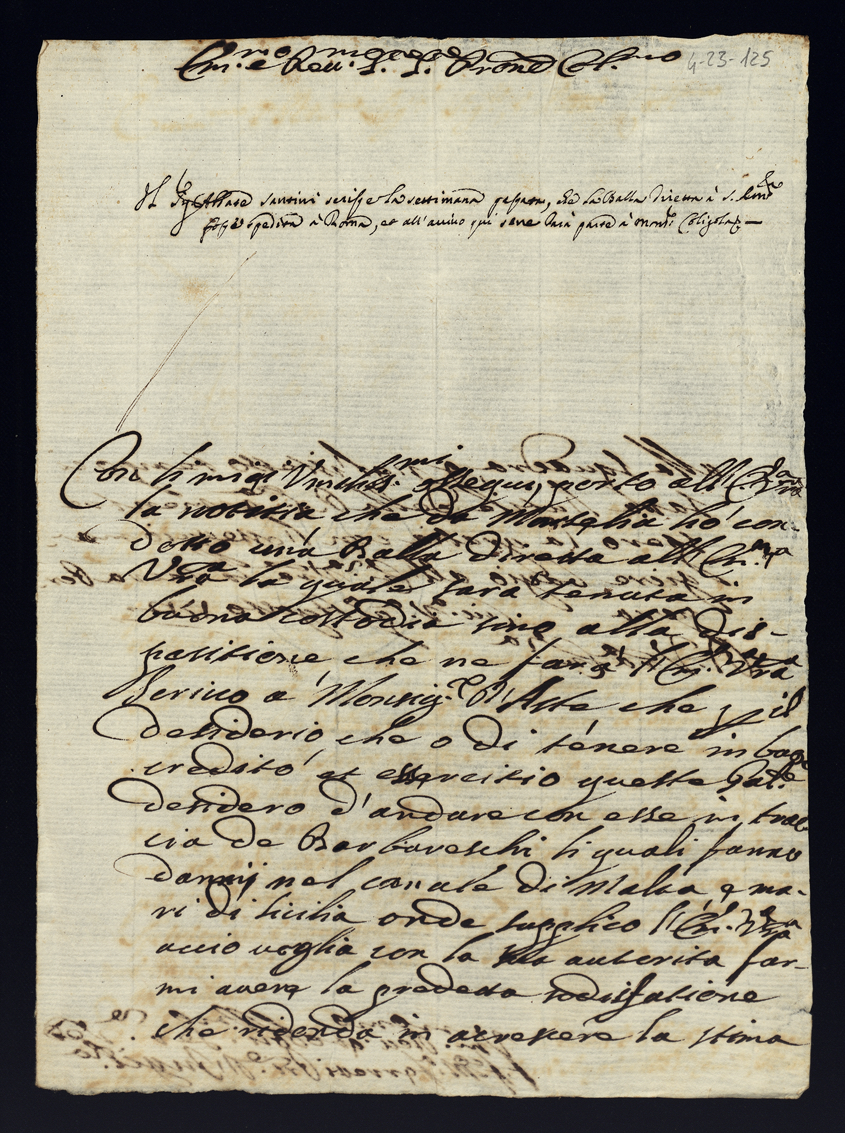 Em.mo e Reu.mo S.re S.re Prone Col.mo 4-23-125
Il Sig.re Abbate santini scrisse la settimana passata, che la Balla diretta à s. Em.za
fosse spedita à Roma, et all'auuiso qui sene darà parte à Mons.r
Con li miei osseq.ui, porto all'Em.za Vra
la notitia che da Marseglia hò con-
dotto una Balla diretta all'Em.za
Vra la quale sarà tenuta in
buona custodia sino alla dis-
positione che ne farà l'Em.za Vra
Scriuo a Monsig.re d'Aste che p il
desiderio che o di tenere in bon
credito et essercitio queste Gal.e
desidero d'andare con esse in trac-
cia de Barbareschi li quali fanno
danni nel canale di Malta e ma-
ri di Sicilia onde supplico l'Em.za Vra
accio voglia con la sua autorita far-
mi avere la predetta sodisfatione
che ridonda in acrescere la stima